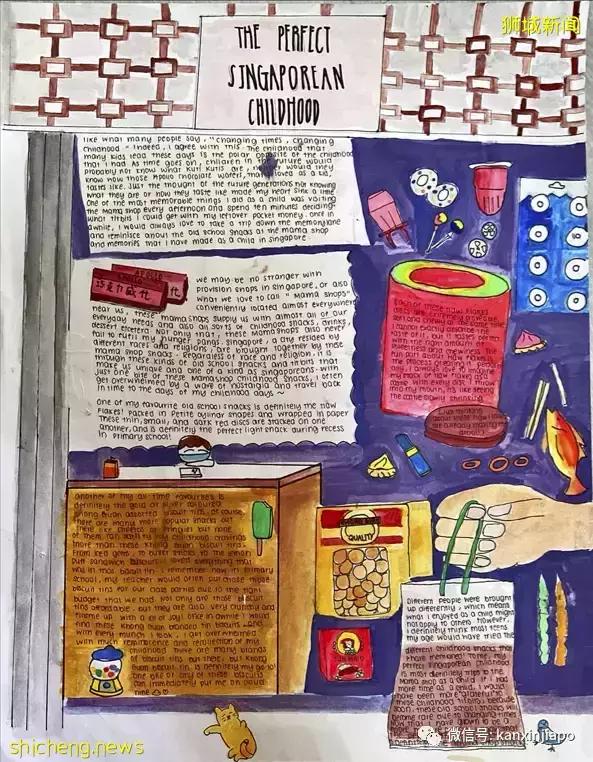 狮城新闻
THE PERFECT
SINGAPOREAN
CHILDHOOD
like what many people say, "changing times, changing
childhood". Indeed, I agree with this. The childhood that
many kids lead these days is the polar opposite of the childhood
that I had. As time goes on, children in the future would
probably not know what Kuti Kutis are, nor would they
know how those Apollo chocolate wafers, I loved as a kid,
tastes like. Just the thought of the future generations not knowing
what they are or how they taste like made my heart sink a little.
One of the most memorable things I did as a child was visiting
the Mama shop every afternoon and spend ten minutes deciding
what titbits I could get with my leftover pocket money. Once in
awhile, I would always love to take a trip down the memory lane
and reminisce about the old school snacks at the mama shop
and memories that I have made as a child in Singapore.
APOLLO
巧克力威化
化
We may be no stranger with
provision shops in Singapore, or also
what we love to call "Mama shops"
conveniently located almost everywhere
near us, these mama shops supply us with almost all of our
everyday needs and also all sorts of childhood snacks, drinks,
dessert etcetera. Not only that, these mama shops also never
fail to fulfil my hunger pangs. Singapore, a city resided by
different races and religions, are brought together by these
mama shop snacks. Regardless of race and religion, it is
through these kinds of old school snacks and titbits that
make us unique and one of a kind as Singaporeans. With
just one bite of these Mamashop childhood snacks, I often
get overwhelmed by a wave of nostalgia and travel back
in time to the days of my childhood days ~
One of my favourite old school snacks is definitely the Haw
Flakes! Packed in petite cylinar shapes and wrapped in paper
These thin, small, and dark red discs are stacked on one
another, and is definitely the perfect light snack during recess
in primary school!
Each of these haw flakes
discs are extremely addictive,
soft and chewy at the same time.
I cannot exactly describe the
taste of it, but it tastes perfect
with the right amount of
sweetness and chewiness. The
fun part about haw flakes is
the process of how people eat
it, I always love to imagine
my pack of haw flakes as a
candle. With every disc I throw
into my mouth, it's like seeing
the candle slowly shrinking.
Just thinking
about these haw flakes
are already making me
drool!
Another of my all time favourites is
definitely the gold or silver coloured
Khong Guan assorted biscuit tins. Of course,
there are many more popular snacks out
there like Cheetos or Pringles but none
of them can satisfy my childhood cravings
more than these Khong Guan biscuit tins.
From Iced gems, to butter sticks to the lemon
puff sandwich biscuits, I loved everything that
was in that biscuit tin. I remember how in primary
school, my teacher would often purchase those
biscuit tins for our class parties due to the tight
budget that we had. Not only are those biscuit
tins affordable, but they are also very crunchy and
fire me up with a lot of joy! Once in awhile I would
find these Khong Guan branded tin biscuits and
with every munch I took, I get overwhelmed
with much reminiscence and recollection of my
childhood. There are many brands
of biscuit tins out there, but Khong
Guan biscuit tin, is definitely my go to!
One bite of any of these biscuits
can immediately put me on cloud
nine
QUALITY
Different people were brought
up differently, which means
what I enjoyed as a child might
not apply to others. However,
I definitely think most teens
my age would have tried the
different childhood snacks that
I have mentioned. To me, my
perfect Singaporean childhood
is most definitely trips to the
Mama shop as a child. If I had
more time as a child, I would
have been more grateful to
these childhood titbits because
soon, these old school snacks will
become rare due to changing times
shicheng.news
微信号: kanxinjiapo